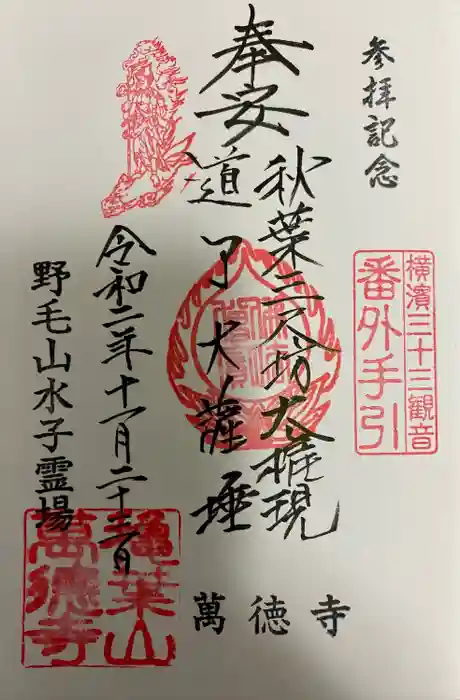 参拝記念
横濱三十三観音
番外手引
奉安
秋葉三尺坊大権現
道了大薩埵
令和二年十一月二十三日
野毛山水子霊場
萬徳寺
葉山
萬德寺